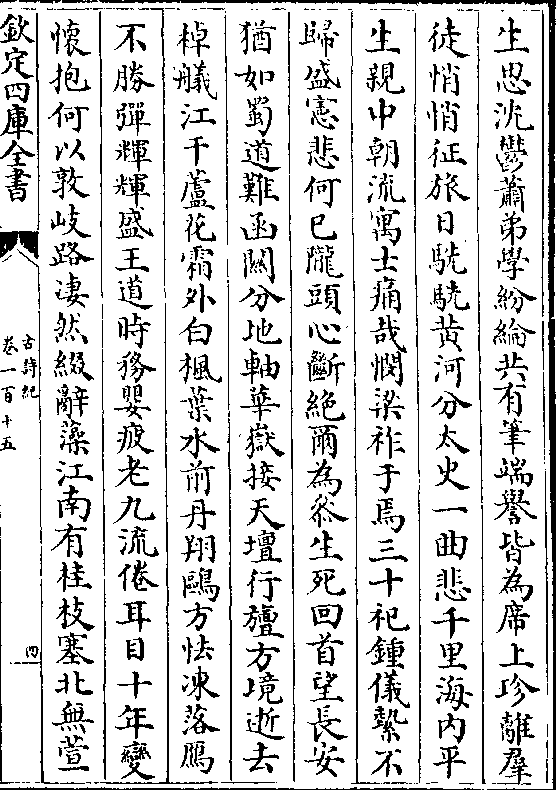 生思沈鬱蕭弟學紛綸共有筆端譽皆為席上珍離羣
徒悄悄征旅日駪駪黄河分太史一曲悲千里海内平
生親中朝流寓士痛哉憫梁祚于焉三十祀鍾儀縶不
歸盛憲悲何已隴頭心斷絶爾為參生死回首望長安
猶如蜀道難函關分地軸華嶽接天壇行旜方境逝去
棹艤江干蘆花霜外白楓葉水前丹翔鷗方怯凍落鴈
不勝彈輝輝盛王道時務嬰疲老九流倦耳目十年變
懷抱何以敦岐路凄然綴辭藻江南有桂枝塞北無萱
欽定四庫全書
古詩紀
卷一百十五
四